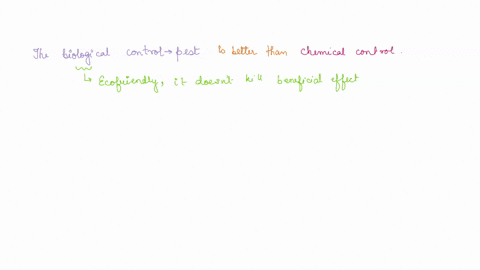 The biological control → pest is better than chemical control.
↳ Ecofriendly, it doesn't kill beneficial effect